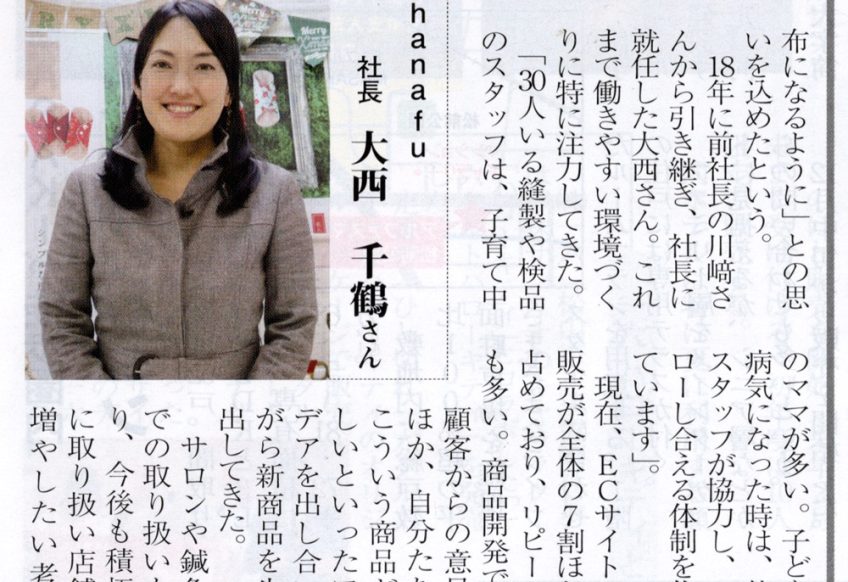 布になるように」との思
いを込めたという。
18年に前社長の川﨑さ
んから引き継ぎ、社長に
就任した大西さん。これ
まで働きやすい環境づく
りに特に注力してきた。
「30人いる縫製や検品
のスタッフは、子育て中
のママが多い。子ど
病気になった時は、
スタッフが協力し、
ローし合える体制を
ています」。
現在、ECサイト
販売が全体の7割ほ
占めており、リピー
も多い。商品開発で
顧客からの意見
ほか、自分た
こういう商品が
しいといった
デアを出し合
がら新商品を
出してきた。
サロンや鍼
での取り扱い
り、今後も積極
に取り扱い店
増やしたい考
hanafu
社長 大西 千鶴さん
Merry